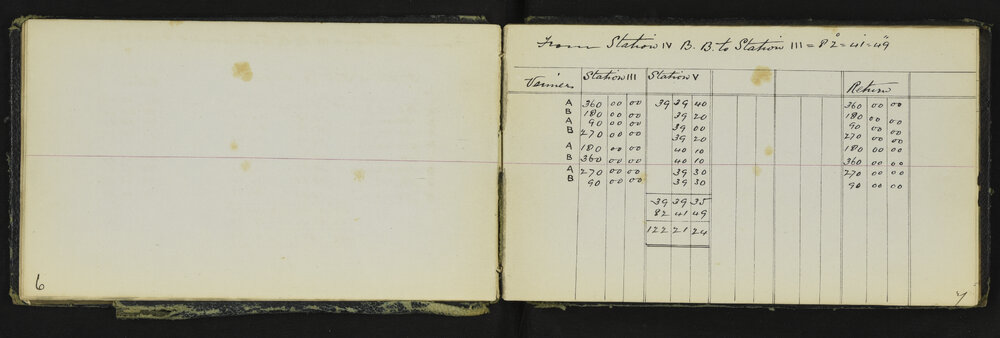 6
From Station IV B. B to Station III = 82° = 41' = 49"
Verniers Station III Station V Return
A 360 00 00 39 39 40 360 00 00
B 180 00 00 39 20 180 00 00
A 90 00 00 39 00 90 00 00
B 270 00 00 39 20 270 00 00
A 180 00 00 40 10 180 00 00
B 360 00 00 40 10 360 00 00
A 270 00 00 39 30 270 00 00
B 90 00 00 39 30 90 00 00
39 39 35
82 41 49
122 21 24
7